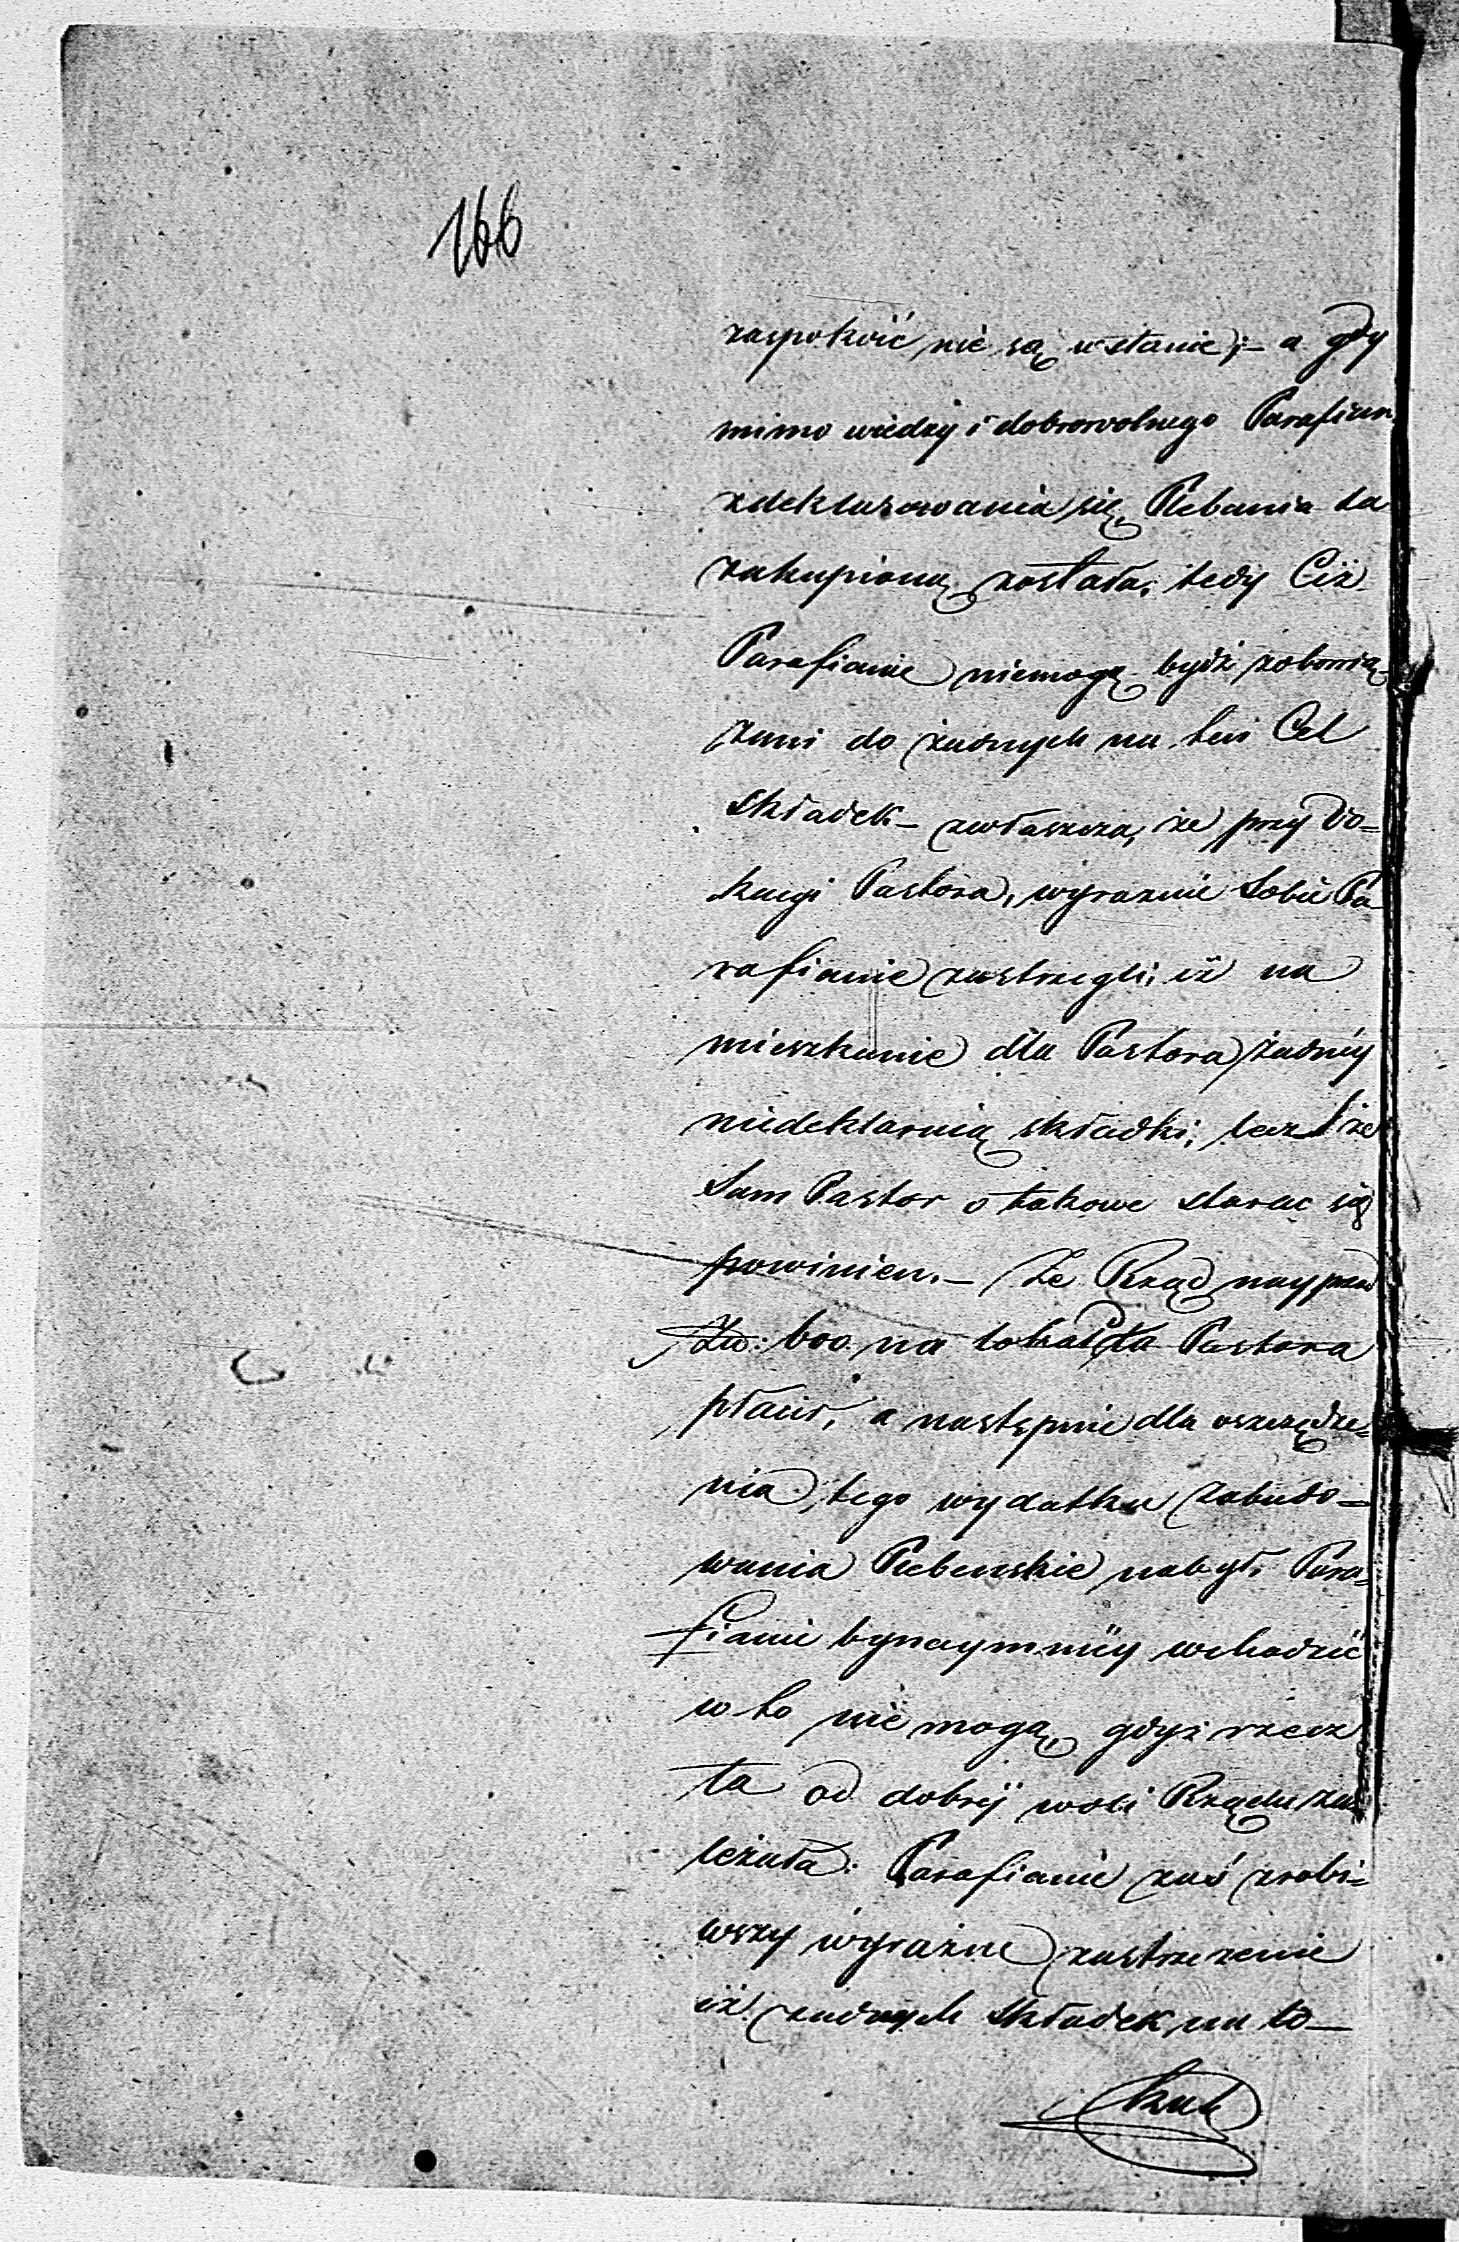 166
zaspokoić nie są w stanie; – a gdy
mimo wiedzy i dobrowolnego Parafian
zdeklarowania się Plebania ta
zakupioną została, tedy Ciż
Parafianie niemogą bydź zobowią-
zani do żadnych na ten Cel
składek – zwłaszcza, że przy Wo-
kacyi Pastora, wyraznie Sobie Pa-
rafianie zastrzegli, iż na
mieszkanie dla Pastora żadnéy
niedeklaruią składki, lecz że
Sam Pastor o takowe starac się
powinien. – Że Rząd nayprzód
Złł: 600. na lokal dla Pastora
płacił, a następnie dla oszczędze-
nia tego wydatku zabudo-
wania Plebańskie nabył, Para-
fianie bynaymniéy wchodzić
w to nie mogą, gdyż rzecz
ta od dobréj woli Rządu za-
leżała. Parafianie zaś zrobi-
wszy wyrazne zastrzezenie
iż żadnych składek na to –